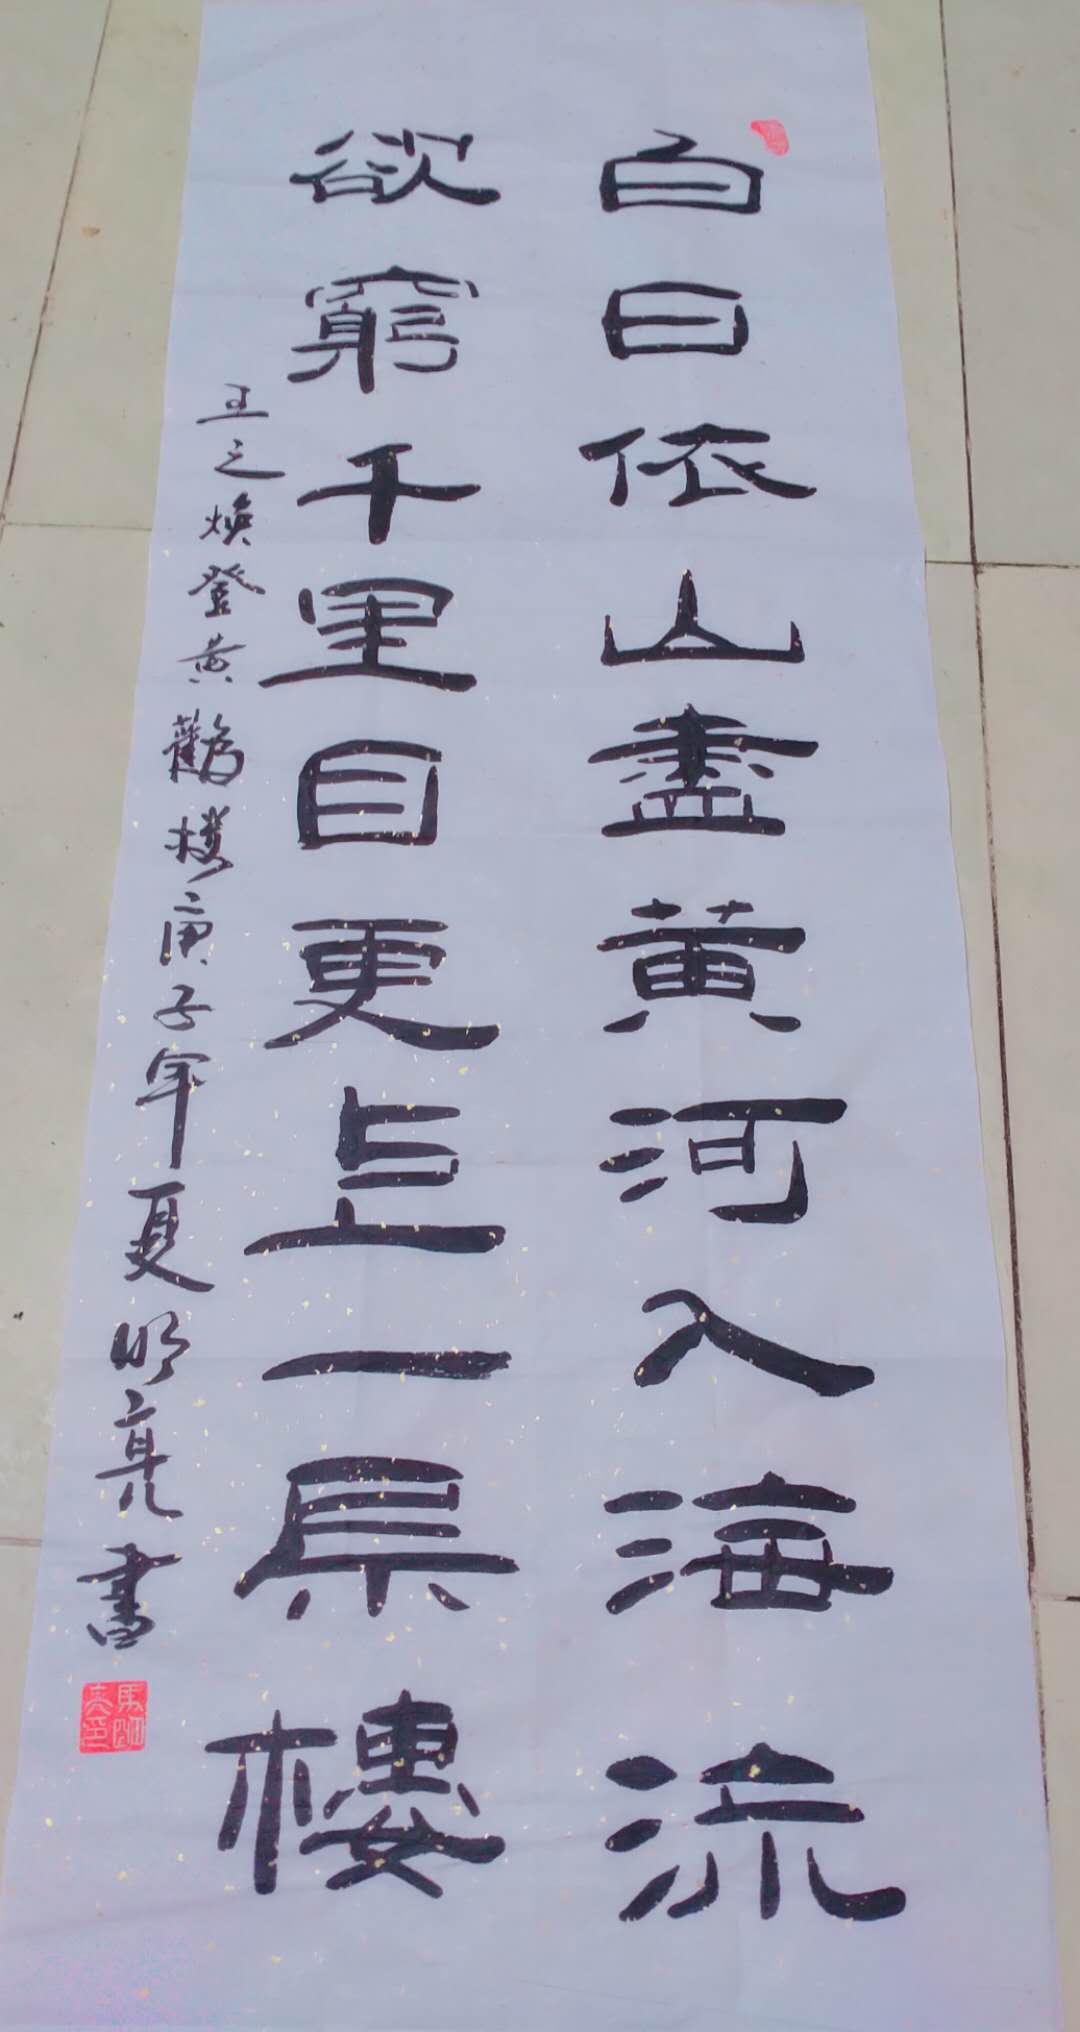 白日依山盡黄河入海流
欲窮千里目更上一层樓
王之焕登黄鸛楼庚子年夏明亮書
馬明亮印